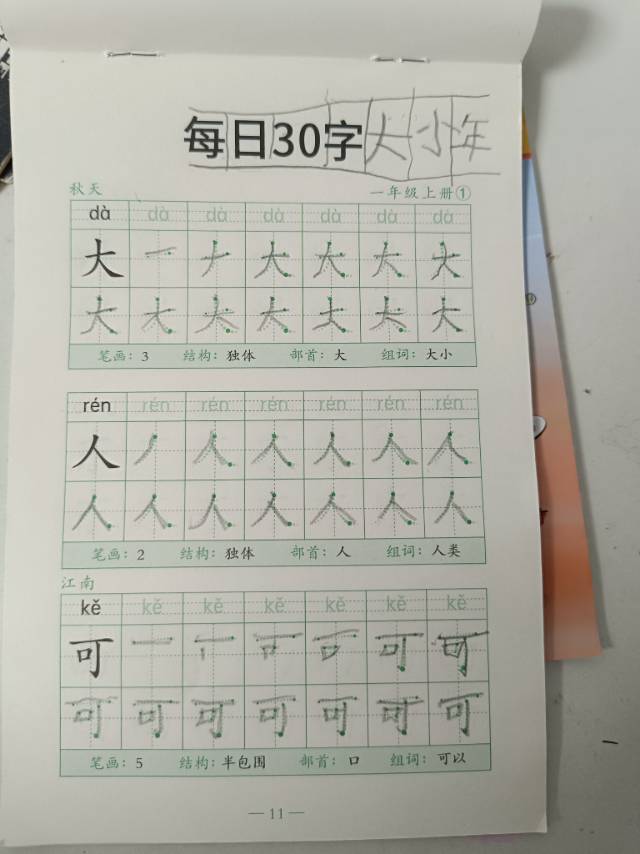 每日30字大小年
秋天 一年级上册①
dà dà dà dà dà dà dà
大 一 ナ 大 大 大 大
大 大 大 大 大 大 大
笔画：3 结构：独体 部首：大 组词：大小
rén rén rén rén rén rén rén
人 丿 人 人 人 人 人
人 人 人 人 人 人 人
笔画：2 结构：独体 部首：人 组词：人类
江南
kě kě kě kě kě kě kě
可 一 可 可
可 可 可 可 可 可 可
笔画：5 结构：半包围 部首：口 组词：可以
— 11 —